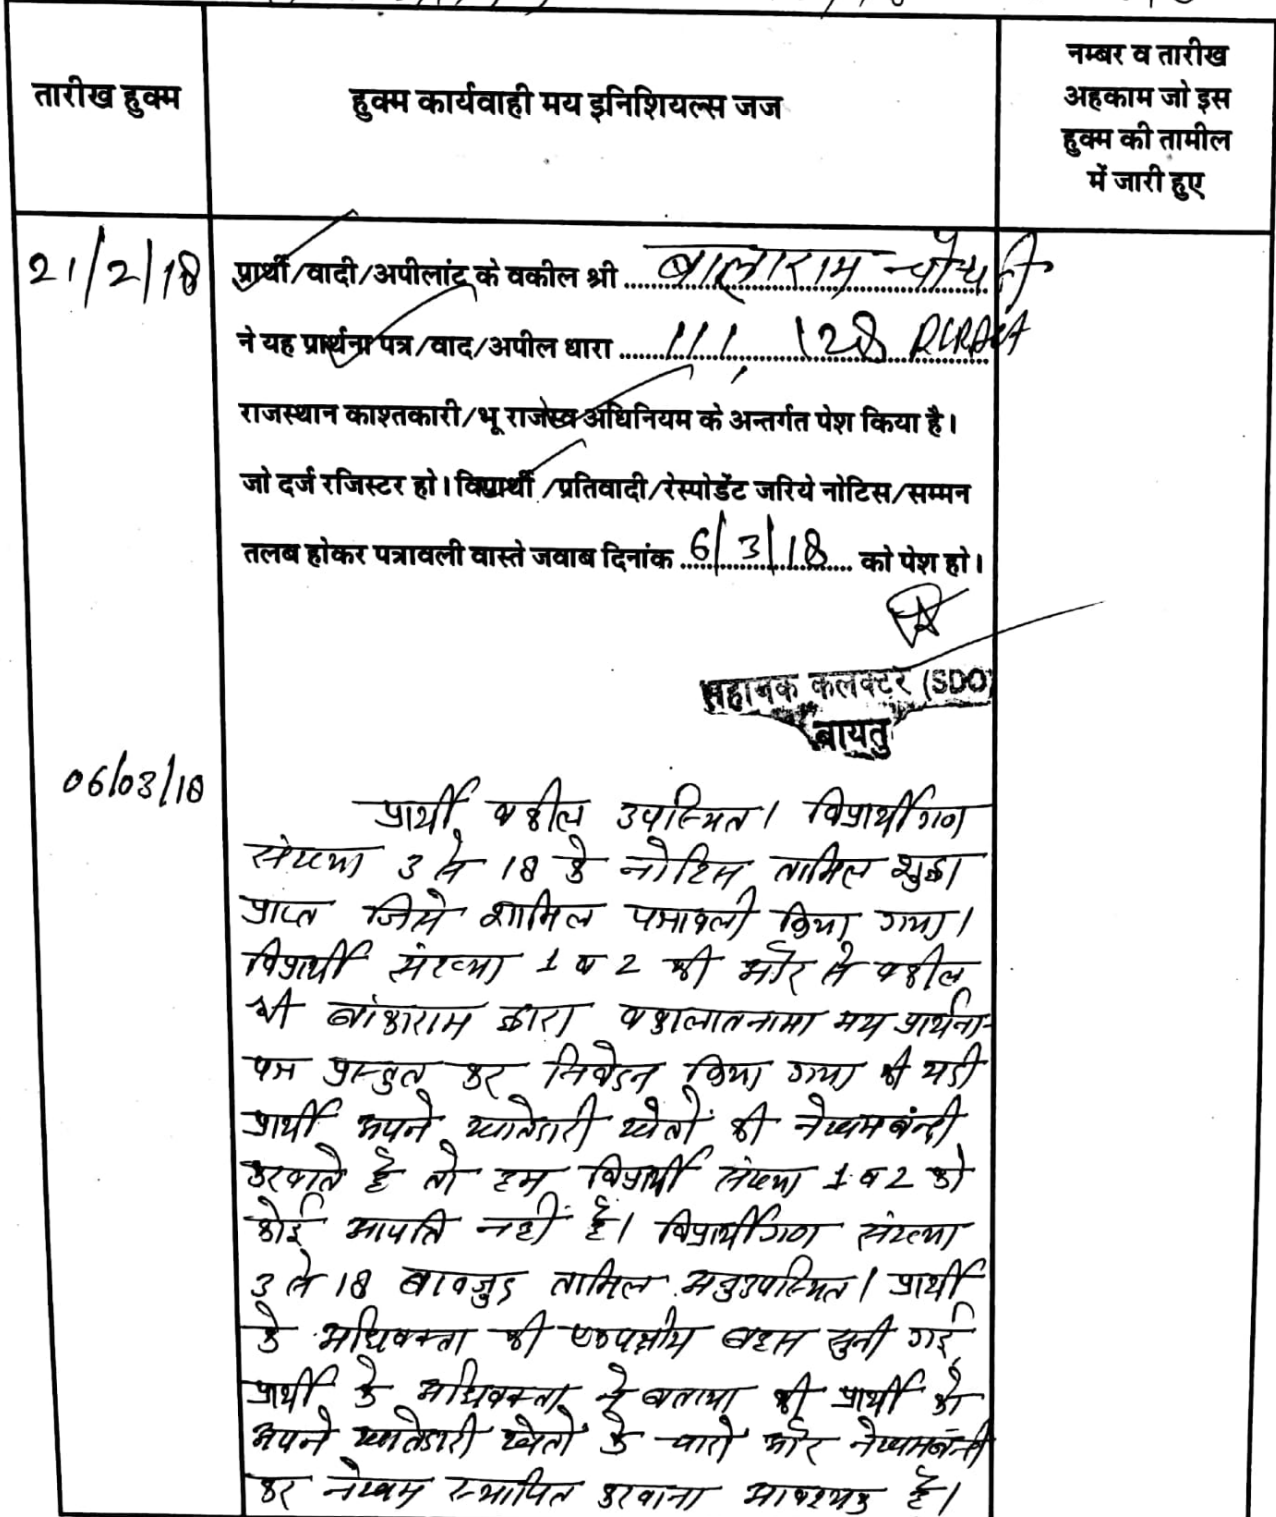 तारीख हुक्म
हुक्म कार्यवाही मय इनिशियल्स जज
नम्बर व तारीख
अहकाम जो इस
हुक्म की तामील
में जारी हुए
21/2/18
प्रार्थी/वादी/अपीलांट के वकील श्री बालाराम चौधरी
ने यह प्रार्थना पत्र/वाद/अपील धारा 111, 128
राजस्थान काश्तकारी/भू राजस्व अधिनियम के अन्तर्गत पेश किया है।
जो दर्ज रजिस्टर हो। विप्रार्थी/प्रतिवादी/रेस्पोडेंट जरिये नोटिस/सम्मन
तलब होकर पत्रावली वास्ते जवाब दिनांक 6/3/18 को पेश हो।
सहायक कलक्टर (SDO)
बायतु
06/03/18
प्रार्थी वकील उपस्थित। विप्रार्थीगण
संख्या 3 से 18 के नोटिस तामिल शुदा
प्राप्त जिसे शामिल पत्रावली किया गया।
विप्रार्थी संख्या 1 व 2 की ओर से वकील
श्री बांकाराम द्वारा वकालातनामा मय प्रार्थना-
पत्र प्रस्तुत कर निवेदन किया गया की यदी
प्रार्थी अपने खातेदारी खेतों की नेखमबंन्दी
करवाते है तो हम विप्रार्थी संख्या 1 व 2 को
कोई आपति नहीं है। विप्रार्थीगण संख्या
3 से 18 बावजुद तामिल अनुउपस्थित। प्रार्थी
के अधिवक्ता की एकपक्षीय बहस सुनी गई
प्रार्थी के अधिवक्ता ने बताया की प्रार्थी को
अपने खातेदारी खेतों के चारो ओर नेखमबंन्दी
कर नेखम स्थापित करवाना आवश्यक है।